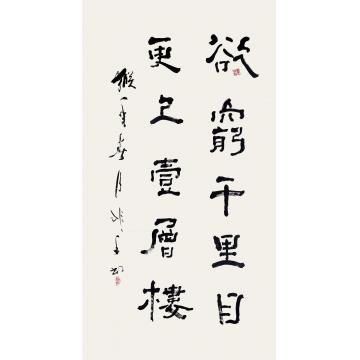 欲窮千里目
更上壹層樓